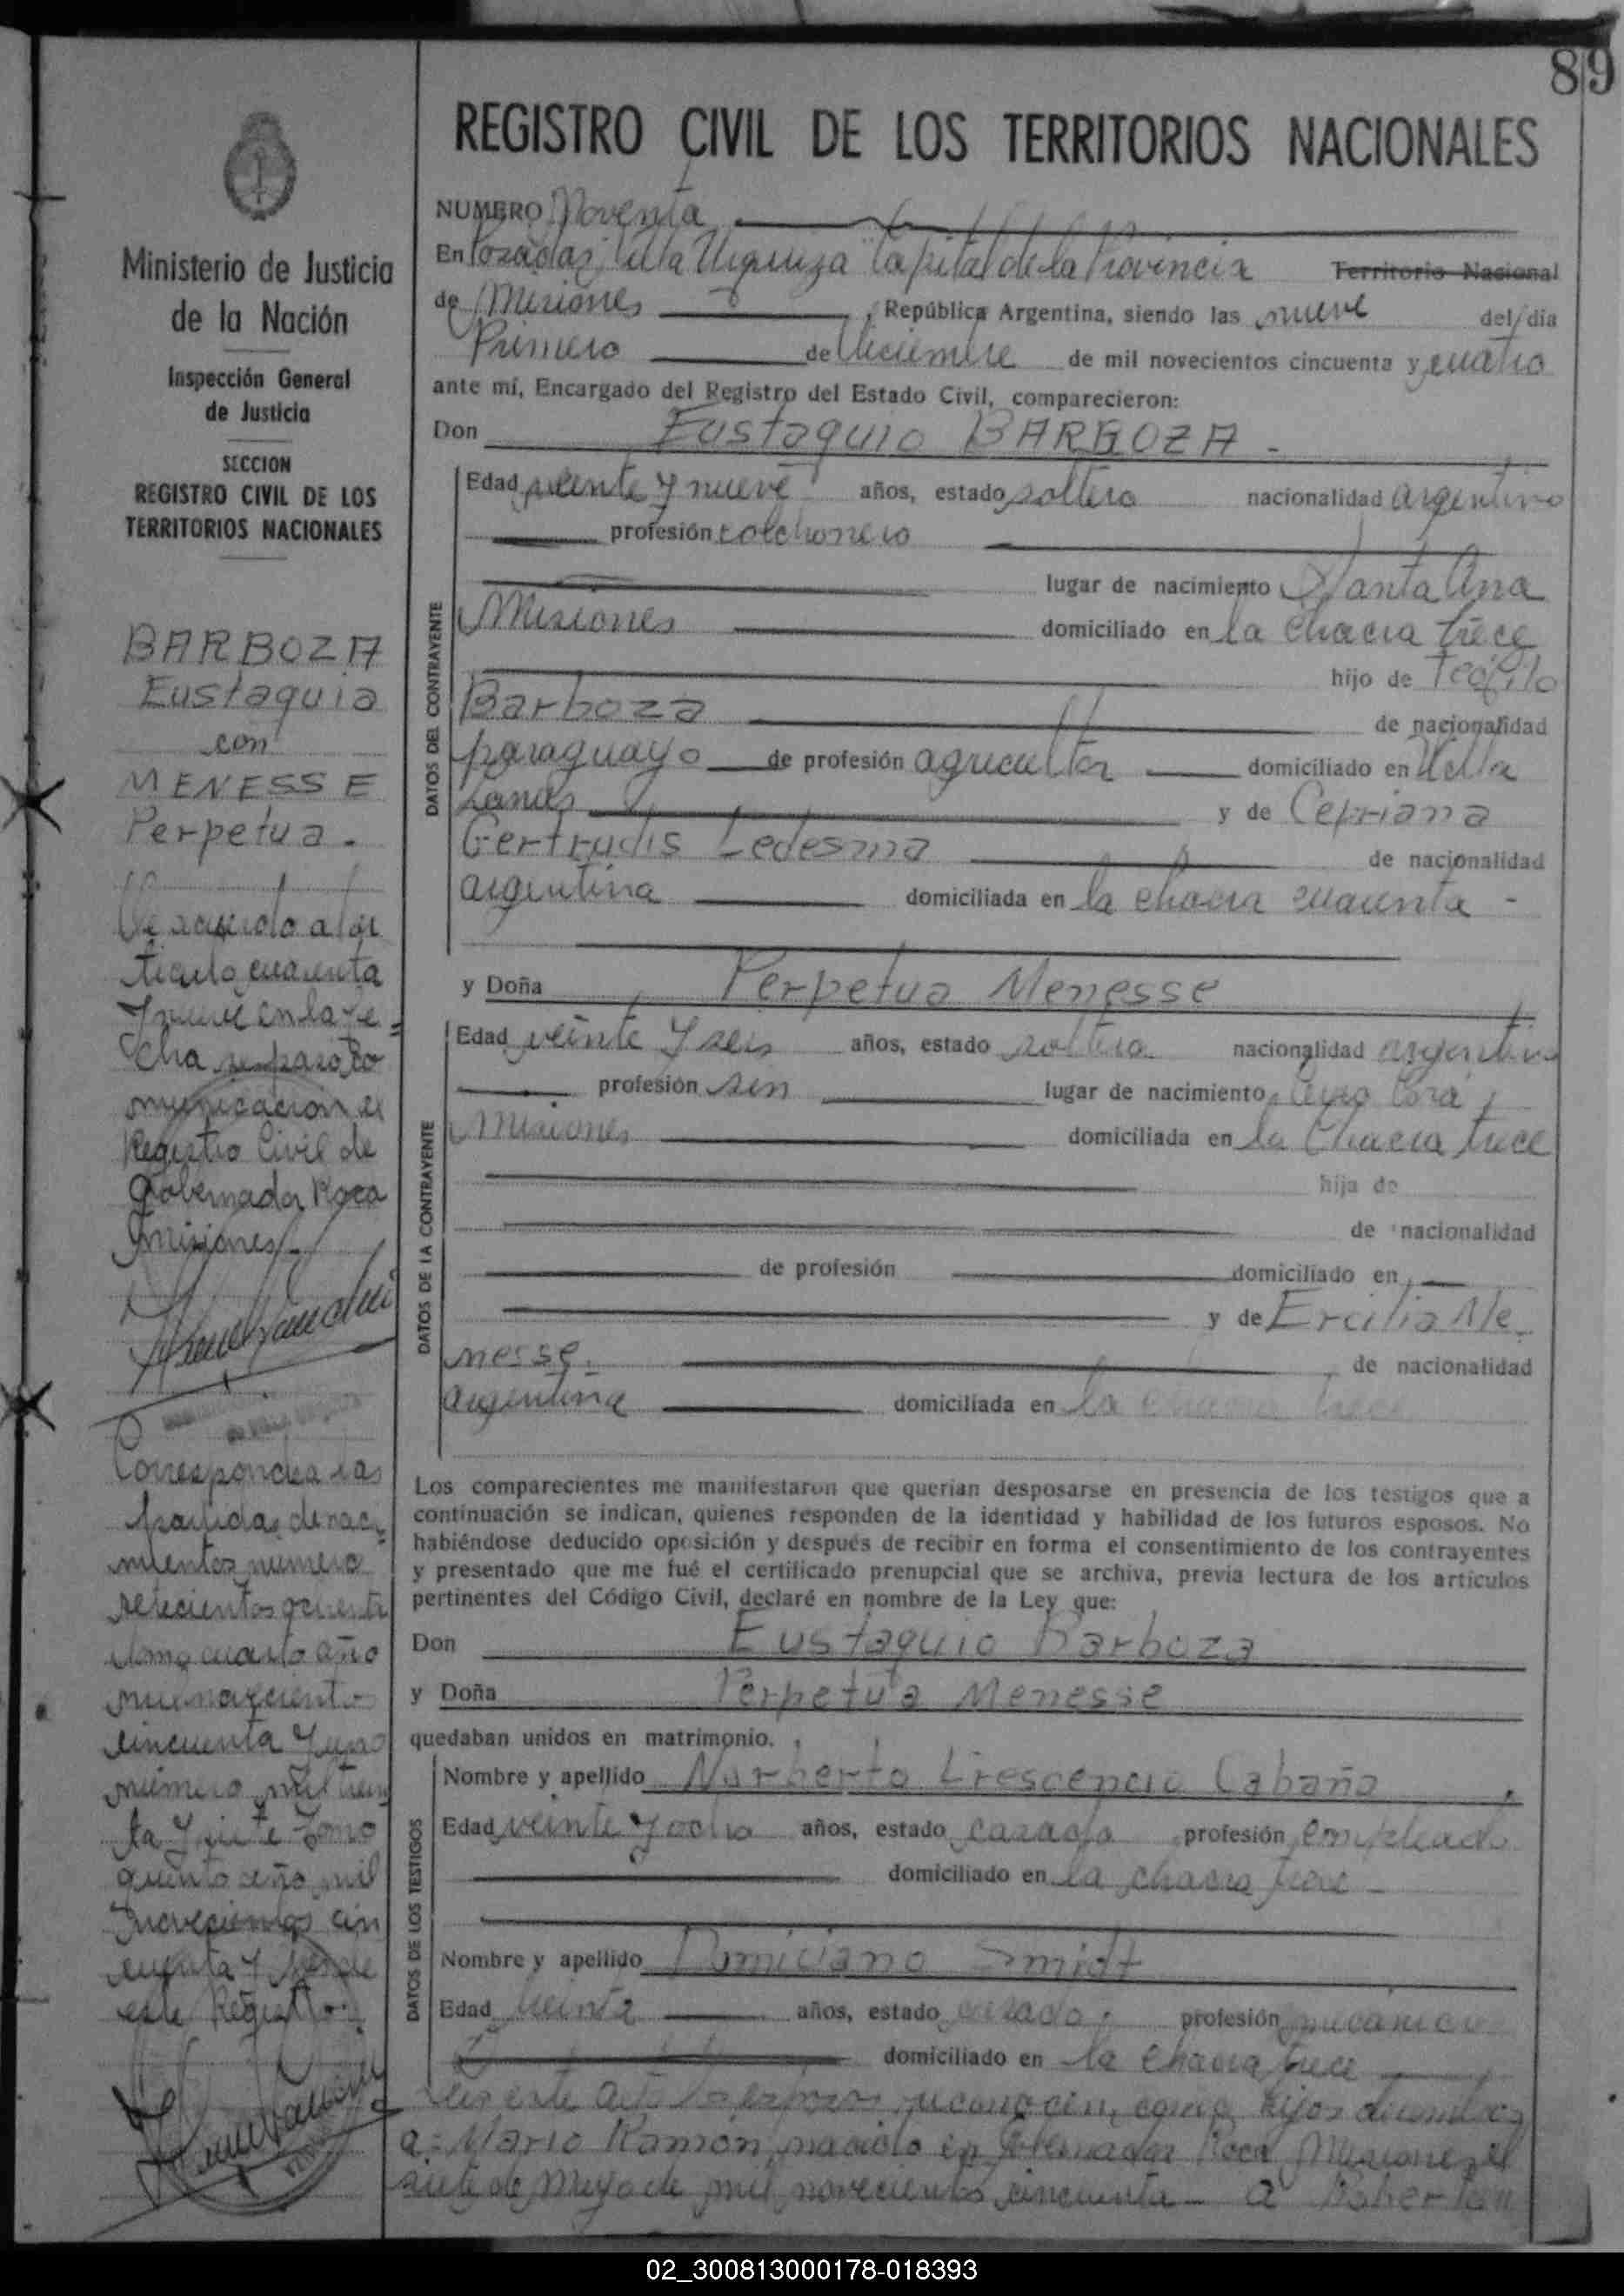 89
REGISTRO CIVIL DE LOS TERRITORIOS NACIONALES
Ministerio de Justicia
de la Nación
Inspección General
de Justicia
SECCION
REGISTRO CIVIL DE LOS
TERRITORIOS NACIONALES
BARBOZA
Eustaquio
con
MENESSE
Perpetua.
De acuerdo al ar
tículo cuarenta
y nueve en la fe=
cha se pasó co
municación al
Registro Civil de
Gobernador Roca
Misiones.-
Corresponde a las
partidas de naci
mientos número
setecientos
tomo cuarto año
mil novecientos
cincuenta y uno
número mil trein
ta y siete tomo
quinto año mil
novecientos cin
cuenta y de
este Registro.
NUMERO Noventa
En Posadas, Villa Urquiza Capital de la Provincia Territorio Nacional
de Misiones, República Argentina, siendo las nueve del día
Primero de Diciembre de mil novecientos cincuenta y cuatro
ante mí, Encargado del Registro del Estado Civil, comparecieron:
Don Eustaquio BARBOZA -
DATOS DEL CONTRAYENTE
Edad veinte y nueve años, estado soltero nacionalidad argentino
profesión colchonero
lugar de nacimiento Santa Ana
Misiones domiciliado en la chacra trece
hijo de Teófilo
Barboza de nacionalidad
paraguayo de profesión agricultor domiciliado en Villa
Lanús y de Cepriana
Gertrudis Ledesma de nacionalidad
argentina domiciliada en la chacra cuarenta -
y Doña Perpetua Menesse
DATOS DE LA CONTRAYENTE
Edad veinte y seis años, estado soltera nacionalidad argentina
profesión sin lugar de nacimiento Cerro Corá,
Misiones domiciliada en la Chacra trece
hija de
de nacionalidad
de profesión domiciliado en
y de Ercilia Me
nesse. de nacionalidad
argentina domiciliada en la chacra trece
Los comparecientes me manifestaron que querían desposarse en presencia de los testigos que a
continuación se indican, quienes responden de la identidad y habilidad de los futuros esposos. No
habiéndose deducido oposición y después de recibir en forma el consentimiento de los contrayentes
y presentado que me fué el certificado prenupcial que se archiva, previa lectura de los artículos
pertinentes del Código Civil, declaré en nombre de la Ley que:
Don Eustaquio Barboza
y Doña Perpetua Menesse
quedaban unidos en matrimonio.
DATOS DE LOS TESTIGOS
Nombre y apellido Norberto Crescencio Cabaña
Edad veinte y ocho años, estado casado profesión empleado
domiciliado en la chacra trece
Nombre y apellido Domiciano Smidt
Edad treinta años, estado casado. profesión mecánico
domiciliado en la chacra trece
En este acto los esposos reconocen, como hijos de ambos
a: Mario Ramón, nacido en Gobernador Roca Misiones el
siete de Mayo de mil novecientos cincuenta - a
02_300813000178-018393